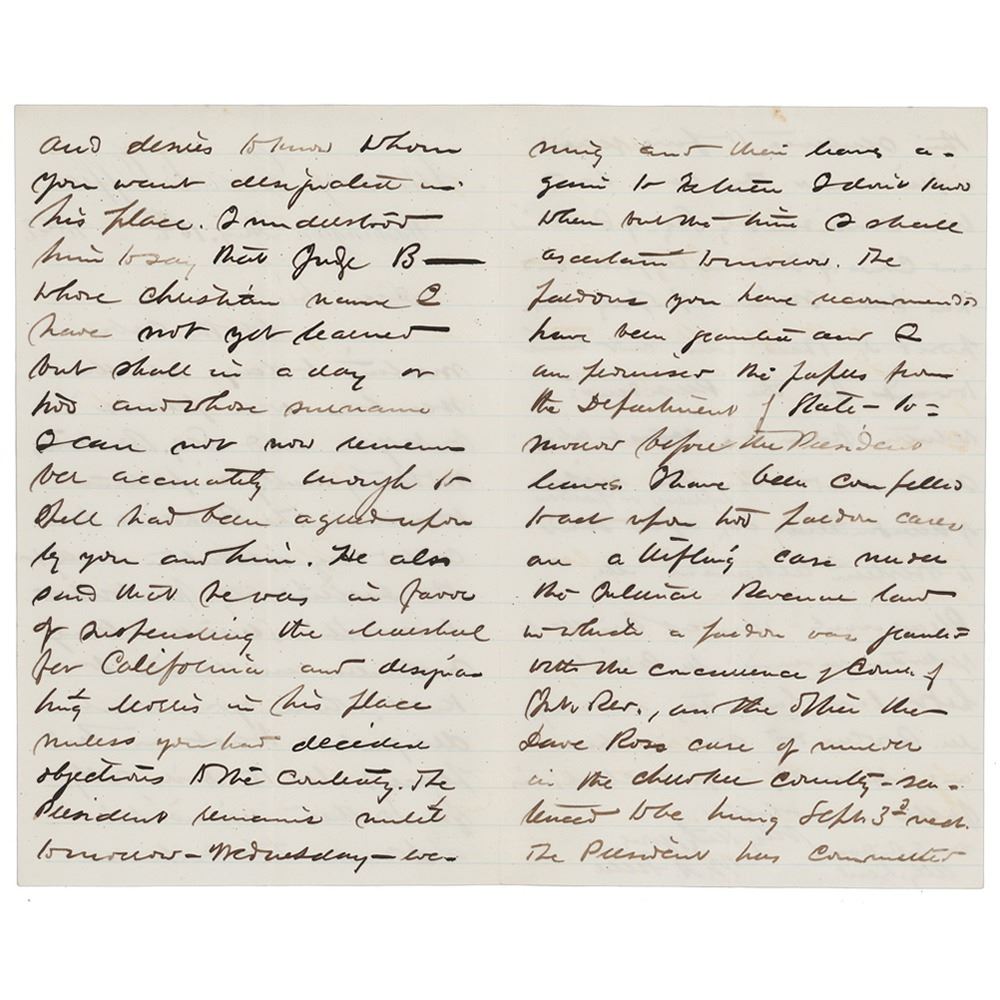 and desires to know whom
you want designated in
his place. I understood
him to say that Judge B—
whose christian name I
have not yet learned
but shall in a day or
two and whose surname
I can not now remem-
ber accurately enough to
spell had been agreed upon
by you and him. He also
said that he was in favor
of suspending the Marshal
for California and designa-
ting Morris in his place
unless you had decided
objections to the contrary. The
President remains until
tomorrow – Wednesday – eve-
ning and then leaves a-
gain to return I don't know
when but the time I shall
ascertain tomorrow. The
pardons you have recommended
have been granted and I
am promised the papers from
the Department of State – to=
morrow before the President
leaves. I have been compelled
to act upon two pardon cases
one a trifling case under
the Internal Revenue law
in which a pardon was grant=
with the concurrence of Com. of
Int. Rev., and the other the
Dave Ross case of murder
in the cherokee country – sen-
tenced to be hung Sept. 3d next.
The President has commuted